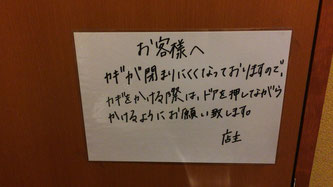 お客様へ
カギが閉まりにくくなっておりますので、
カギをかける際は、ドアを押しながら
かけるようにお願い致します。
店主